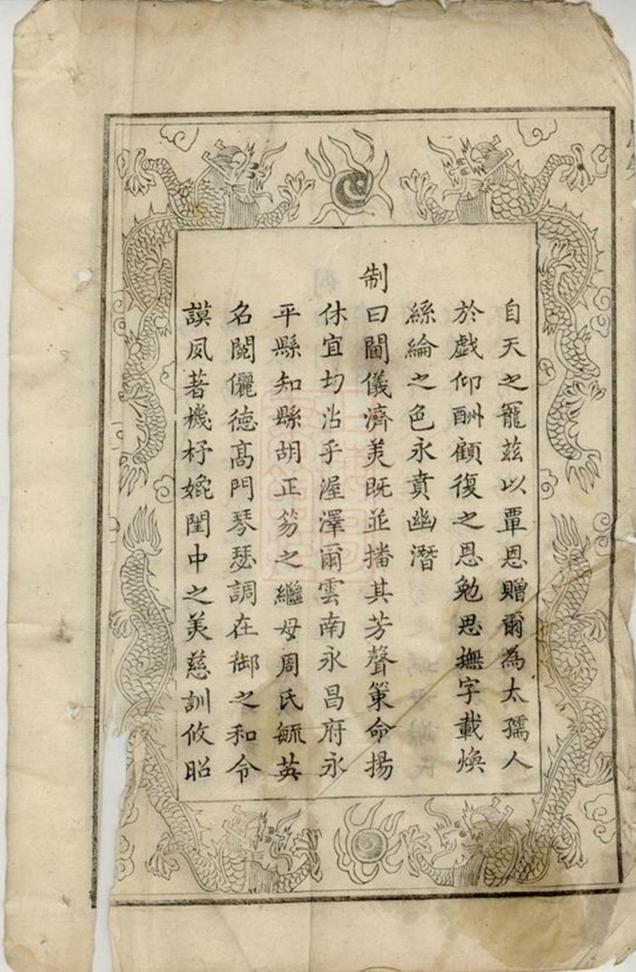 自天之寵茲以覃恩贈爾為太孺人
於戲仰酬顧復之恩勉思撫字載煥
絲綸之色永賁幽潛
制曰閫儀濟美既並播其芳聲策命揚
休宜均沾乎渥澤爾雲南永昌府永
平縣知縣胡正笏之繼母周氏毓英
名閥儷德髙門琴瑟調在御之和令
謨夙著機杼嫓閨中之美慈訓攸昭